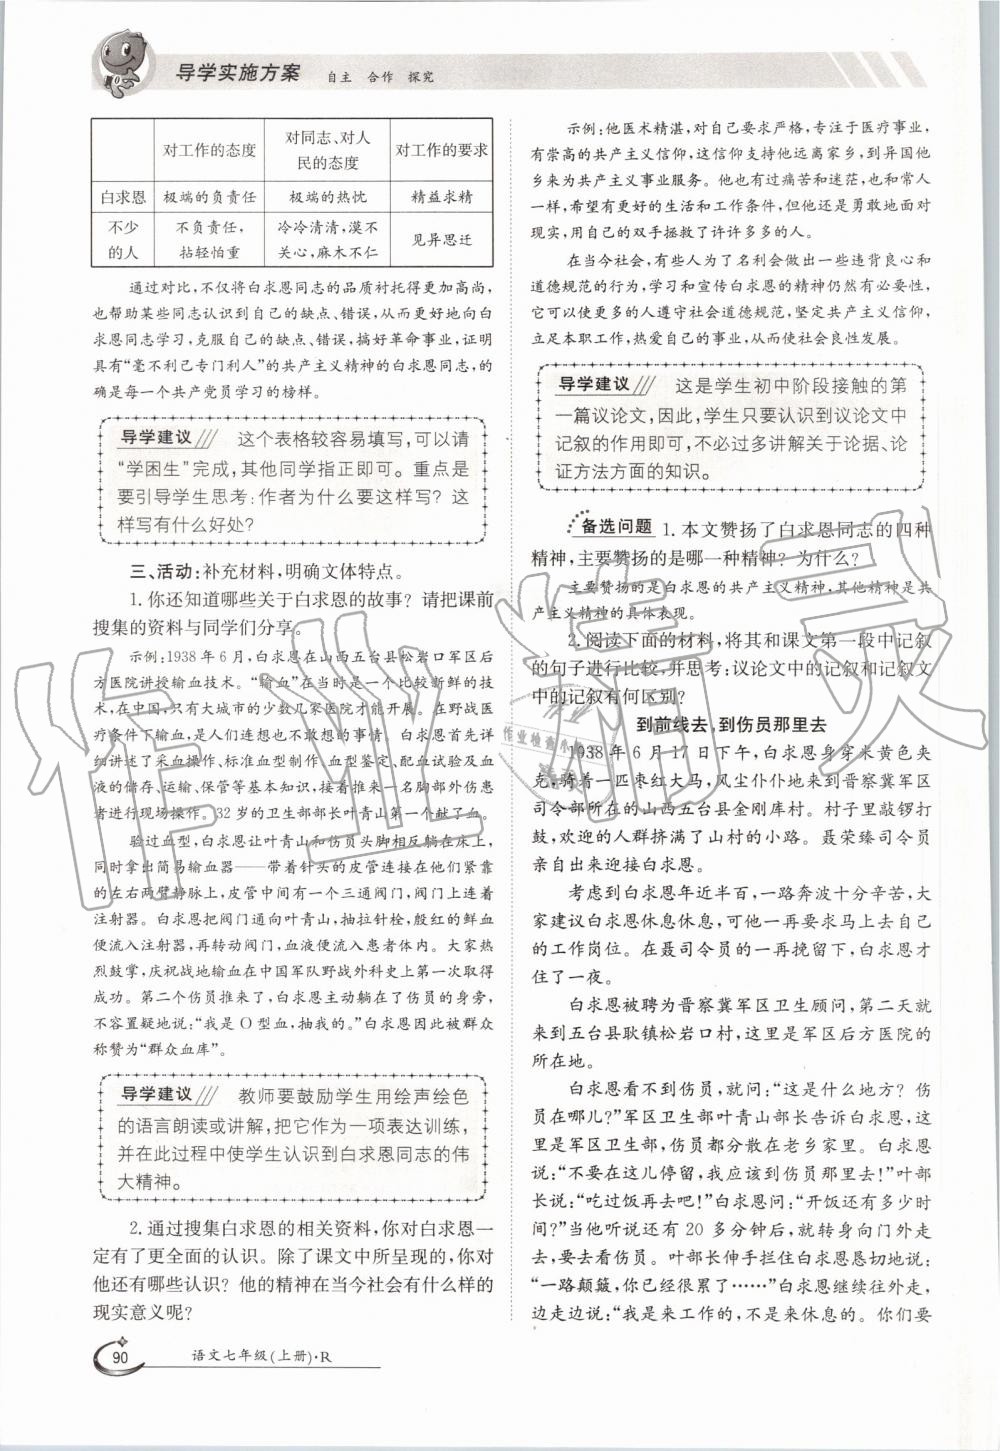 导学实施方案 自主 合作 探究
对工作的态度 对同志、对人民的态度 对工作的要求
白求恩 极端的负责任 极端的热忱 精益求精
不少的人 不负责任，拈轻怕重 冷冷清清，漠不关心，麻木不仁 见异思迁
通过对比，不仅将白求恩同志的品质衬托得更加高尚，
也帮助某些同志认识到自己的缺点、错误，从而更好地向白
求恩同志学习，克服自己的缺点、错误，搞好革命事业，证明
具有“毫不利己专门利人”的共产主义精神的白求恩同志，的
确是每一个共产党员学习的榜样。
导学建议 这个表格较容易填写，可以请
“学困生”完成，其他同学指正即可。重点是
要引导学生思考：作者为什么要这样写？这
样写有什么好处？
三、活动：补充材料，明确文体特点。
1. 你还知道哪些关于白求恩的故事？请把课前
搜集的资料与同学们分享。
示例：1938年6月，白求恩在山西五台县松岩口军区后
方医院讲授输血技术。“输血”在当时是一个比较新鲜的技
术，在中国，只有大城市的少数几家医院才能开展。在野战医
疗条件下输血，是人们连想也不敢想的事情。白求恩首先详
细讲述了采血操作、标准血型制作、血型鉴定、配血试验及血
液的储存、运输、保管等基本知识，接着推来一名胸部外伤患
者进行现场操作。32岁的卫生部部长叶青山第一个献了血。
验过血型，白求恩让叶青山和伤员头脚相反躺在床上，
同时拿出简易输血器——带着针头的皮管连接在他们紧靠
的左右两臂静脉上，皮管中间有一个三通阀门，阀门上连着
注射器。白求恩把阀门通向叶青山，抽拉针栓，殷红的鲜血
便流入注射器，再转动阀门，血液便流入患者体内。大家热
烈鼓掌，庆祝战地输血在中国军队野战外科史上第一次取得
成功。第二个伤员推来了，白求恩主动躺在了伤员的身旁，
不容置疑地说：“我是O型血，抽我的。”白求恩因此被群众
称赞为“群众血库”。
导学建议 教师要鼓励学生用绘声绘色
的语言朗读或讲解，把它作为一项表达训练，
并在此过程中使学生认识到白求恩同志的伟
大精神。
2. 通过搜集白求恩的相关资料，你对白求恩一
定有了更全面的认识。除了课文中所呈现的，你对
他还有哪些认识？他的精神在当今社会有什么样的
现实意义呢？
示例：他医术精湛，对自己要求严格，专注于医疗事业，
有崇高的共产主义信仰，这信仰支持他远离家乡，到异国他
乡来为共产主义事业服务。他也有过痛苦和迷茫，也和常人
一样，希望有更好的生活和工作条件，但他还是勇敢地面对
现实，用自己的双手拯救了许许多多的人。
在当今社会，有些人为了名利会做出一些违背良心和
道德规范的行为，学习和宣传白求恩的精神仍然有必要性，
它可以使更多的人遵守社会道德规范，坚定共产主义信仰，
立足本职工作，热爱自己的事业，从而使社会良性发展。
导学建议 这是学生初中阶段接触的第
一篇议论文，因此，学生只要认识到议论文中
记叙的作用即可，不必过多讲解关于论据、论
证方法方面的知识。
备选问题 1. 本文赞扬了白求恩同志的四种
精神，主要赞扬的是哪一种精神？为什么？
主要赞扬的是白求恩的共产主义精神，其他精神是共
产主义精神的具体表现。
2. 阅读下面的材料，将其和课文第一段中记叙
的句子进行比较，并思考：议论文中的记叙和记叙文
中的记叙有何区别？
到前线去，到伤员那里去
1938年6月17日下午，白求恩身穿米黄色夹
克，骑着一匹枣红大马，风尘仆仆地来到晋察冀军区
司令部所在的山西五台县金刚库村。村子里敲锣打
鼓，欢迎的人群挤满了山村的小路。聂荣臻司令员
亲自出来迎接白求恩。
考虑到白求恩年近半百，一路奔波十分辛苦，大
家建议白求恩休息休息，可他一再要求马上去自己
的工作岗位。在聂司令员的一再挽留下，白求恩才
住了一夜。
白求恩被聘为晋察冀军区卫生顾问，第二天就
来到五台县耿镇松岩口村，这里是军区后方医院的
所在地。
白求恩看不到伤员，就问：“这是什么地方？伤
员在哪儿？”军区卫生部叶青山部长告诉白求恩，这
里是军区卫生部，伤员都分散在老乡家里。白求恩
说：“不要在这儿停留，我应该到伤员那里去！”叶部
长说：“吃过饭再去吧！”白求恩问：“开饭还有多少时
间？”当他听说还有20多分钟后，就转身向门外走
去，要去看伤员。叶部长伸手拦住白求恩恳切地说：
“一路颠簸，你已经很累了……”白求恩继续往外走，
边走边说：“我是来工作的，不是来休息的。你们要
90 语文七年级（上册）·R
作业精灵